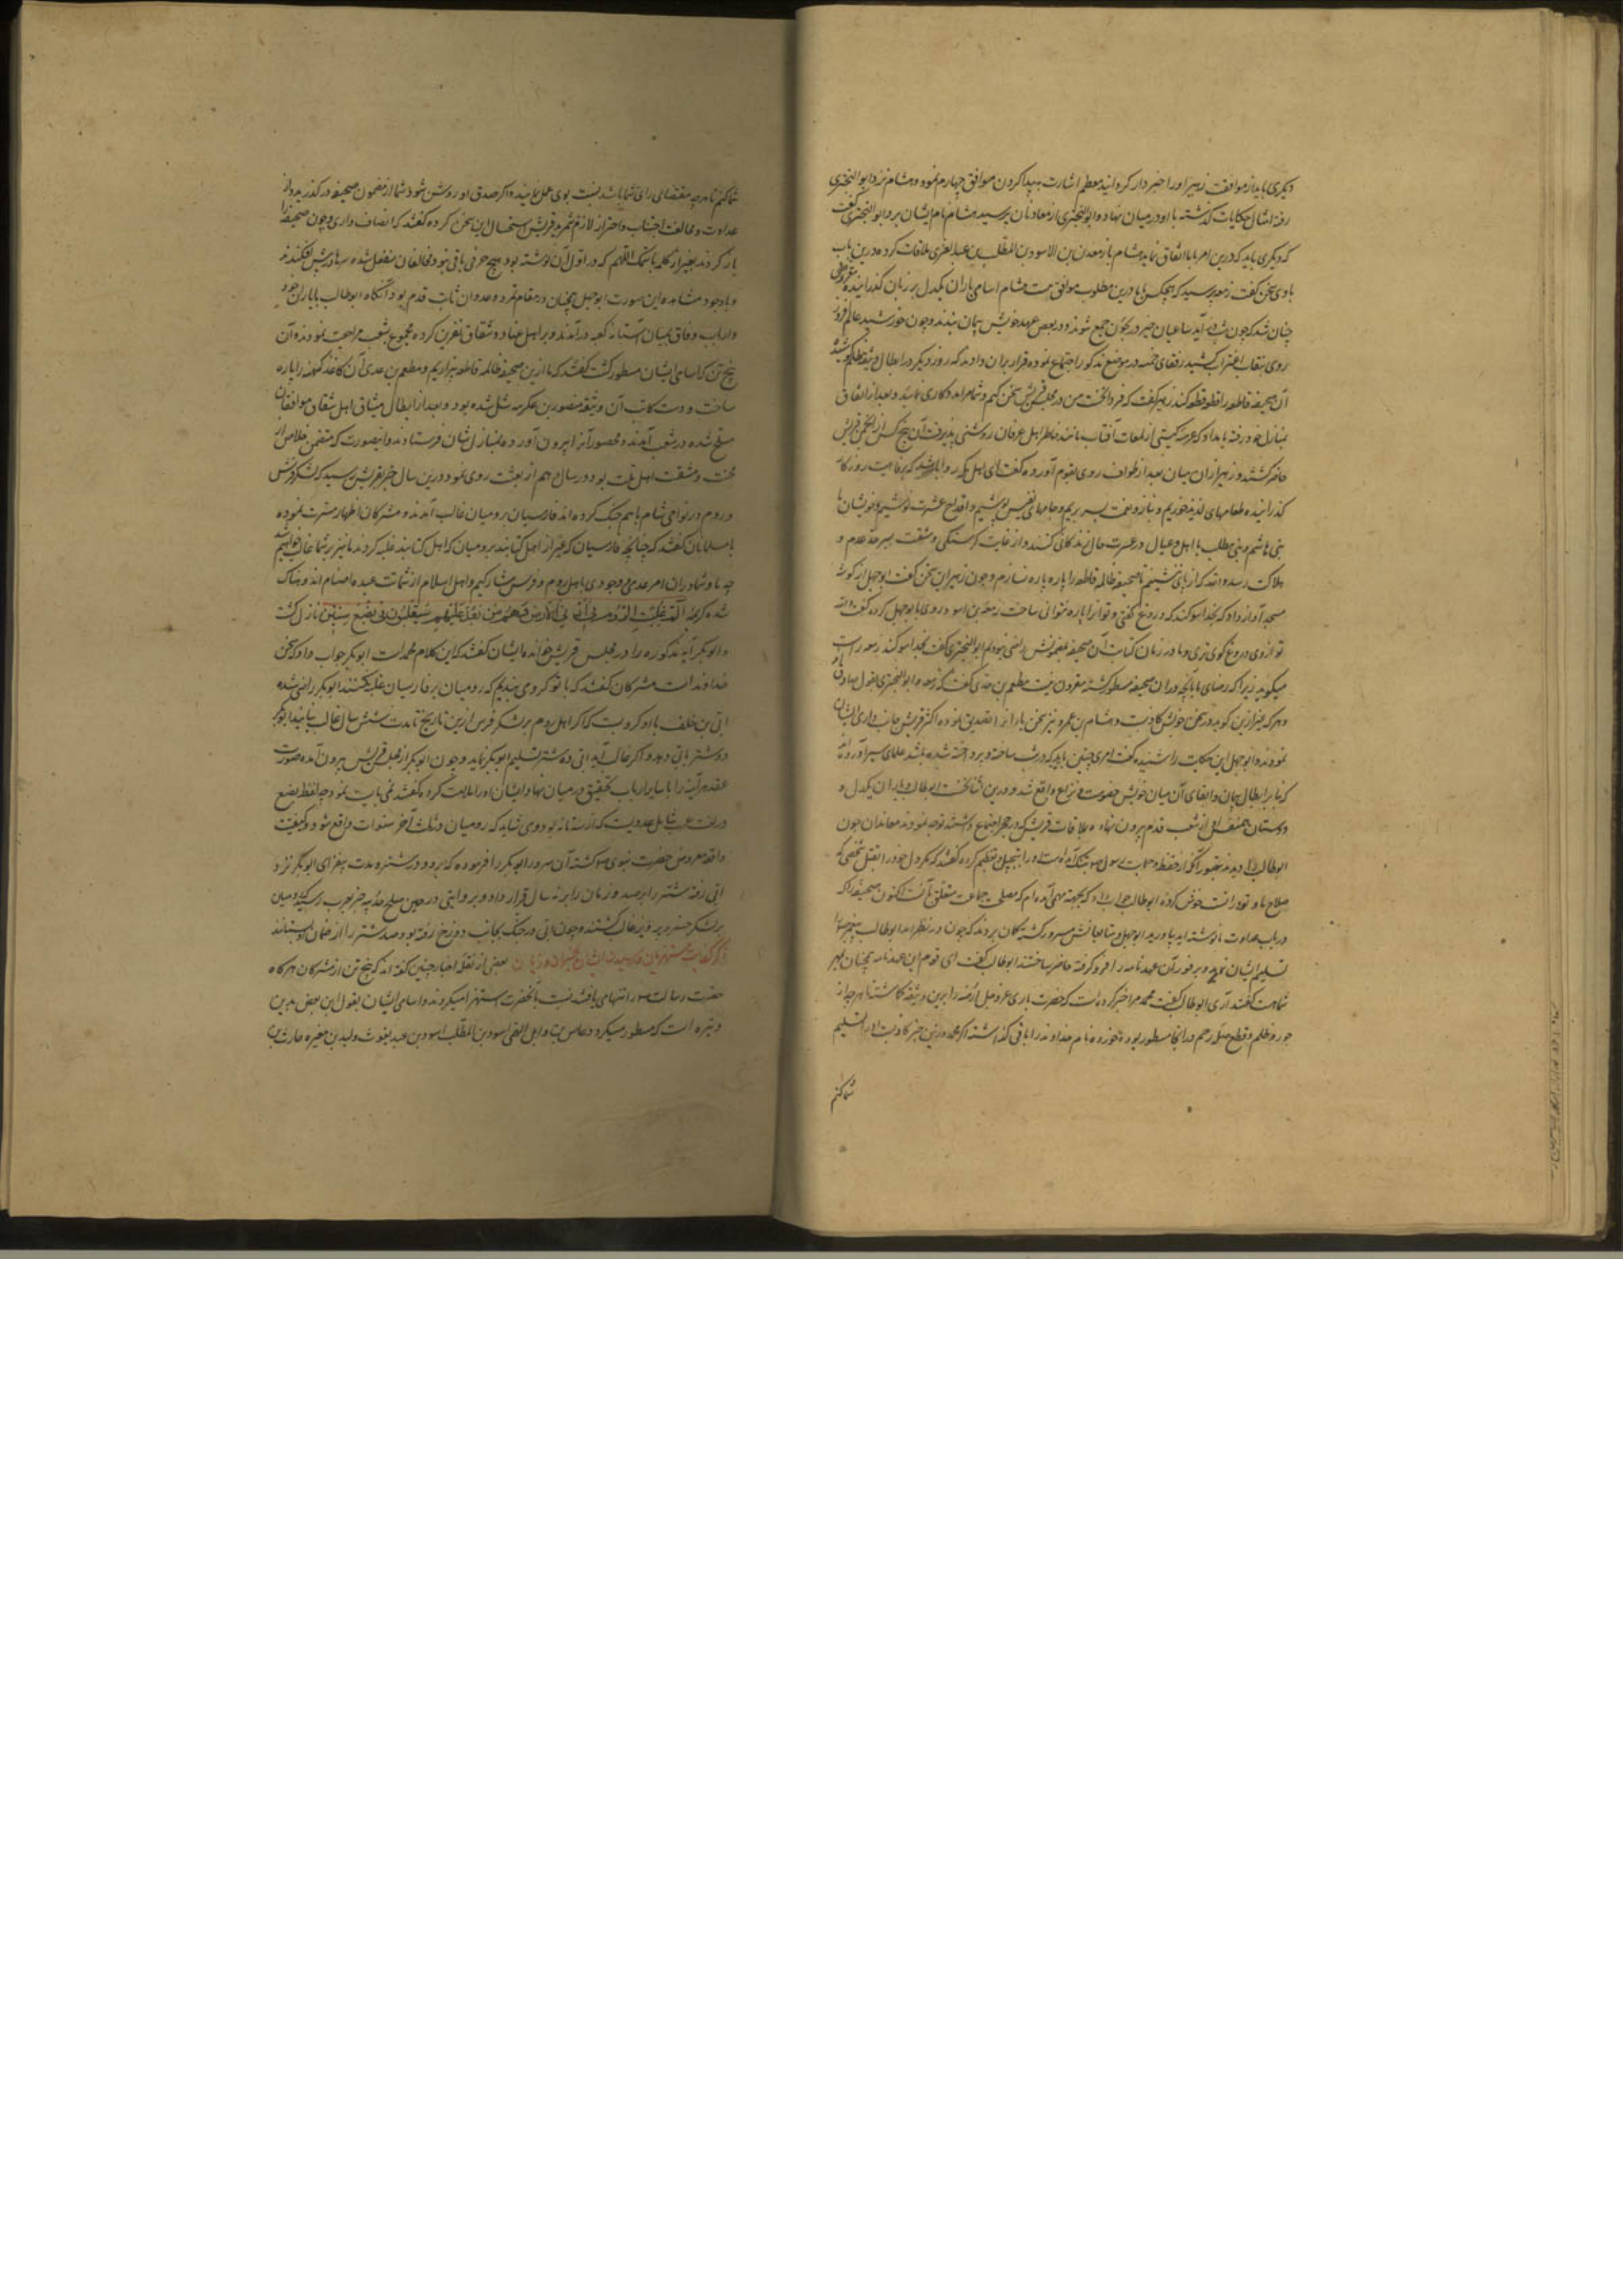 دیگری باید از موافقت زهیر او را خبردار کردانید مطعم اشارت به پیدا کردن موافق چهارم نمود و هشام نزد ابو البختری
رفته امثال حکایات گذشته با او در میان نهاد و ابوالبختری از معاونان پرسید هشام نام ایشان برد ابو البختری گفت
که دیگری باید که درین امر با ما اتفاق نماید هشام با زمعه بن الاسود بن المطلب بن عبد العزی ملاقات کرده درین باب
با وی سخن گفت زمعه پرسید که هیچکس با ما درین مطلوب موافق هست هشام اسامی یاران یکدل بر زبان گذرانیده
چنان شد که چون شب در آید ساعیان خیر در حجون جمع شوند و در بعض عهد خویش پیمان بندند و چون خورشید عالم افروز
روی بنقاب اغتراب کشید رفقای خمسه در موضع مذکور اجتماع نموده قرار بران دادند که روز دیگر در ابطال وثیقه ظلم کوشند
آن صحیفه قاطعه را قطع قطع کنند زهیر گفت که فردا نخست من در مجلس قریش سخن کنم و شما مرا مددکاری نمایید و بعد از اتفاق
بمنازل خود رفته بامداد که عرصه گیتی از لمعات آفتاب مانند خاطر اهل عرفان روشنی پذیرفت آن پنج کس در انجمن قریش
حاضر گشتند و زهیر ازان میان بعد از طواف روی بقوم آورده گفت ای اهل مکه روا باشد که برفاهیت روزگار
گذرانیده طعامهای لذیذ خوریم و بناز و نعمت بسر بریم و جامهای نفیس پوشیم و اقداح عشرت نوشیم و خویشان ما
بنی هاشم و بنی مطلب با اهل و عیال در عسرت حال زندگانی کنند و از غایت گرسنگی و مشقت بسرحد عدم و
هلاکت رسیده اند که از پای ننشینم تا صحیفه ظالمه قاطعه را پاره پاره نسازم و چون زهیر این سخن گفت ابوجهل از گوشه
مسجد آواز داد که بخدا سوگند که دروغ گفتی و تو آنرا پاره نتوانی ساخت زمعه بن اسود روی با بوجهل کرده گفت والله
تو ازوی دروغ گوی تری و ما در زمان کتابت آن صحیفه بمضمونش راضی نبودیم ابو البختری گفت بخدا سوگند زمعه راست
میگوید زیرا که رضای ما بانچه در ان صحیفه مسطور گشته مقرون نیست مطعم بن عدی گفت که زمعه و ابو البختری بقول صادق اند
و هر که غیر ازین گوید در سخن خویش کاذبست و هشام بن عمرو نیز سخن یاران را تصدیق نموده اکثر قریش جانب داری ایشان
نمودند و ابوجهل این حکایت را شنیده گفت امری چنین باید که در شب ساخته و پرداخته شده باشد علمای سیر آورده اند
که بنا بر ابطال پیمان و ابقای آن میان قریش خصومت و نزاع واقع شد و درین اثنا نخست ابوطالب با یاران یکدل و
دوستان متفق از شعب قدم بیرون نهاده بملاقات قریش که در حجر اجتماع داشتند توجه نمودند معاندان چون
ابوطالب را دیدند تصور آنکه از حفظ و حمایت رسول بتنگ آمده است او را بتبجیل و تعظیم کرده گفتند که
صلاح ما و تو در انست خوض کرده ابوطالب جواب داد که بجهته مهمی آمده ام که مصلحت جماعت متعلق بانست اکنون صحیفه را که
در باب عداوت ما نوشته اید بیاورید ابوجهل و متابعانش مسرور گشته گمان بردند که چون در نظر اید ابوطالب پیغمبر را
تسلیم ایشان نماید و بر فور آن عهدنامه را فرو گرفته حاضر ساختند ابوطالب گفت ای قوم این عهدنامه همچنان بمهر
شماست گفتند آری ابوطالب گفت محمد مرا خبر کرده است که حضرت باری عز و جل ارضه را برین وثیقه گماشته تا هر چه از
جور و ظلم و قطع صله رحم در آنجا مسطور بوده خورده نام خداوند را باقی گذاشته اگر محمد درین خبر کاذبست او را تسلیم
شما کنم
شما کنم تا هر چه مقتضای رای شما باشد نسبت بوی عمل نمایید و اگر صدق او روشن شود شما از مضمون صحیفه درگذرید و از
عداوت و مخالفت اجتناب و احتراز لازم شمرید قریش استحسان این سخن کرده گفتند که انصاف دادی و چون صحیفه را
باز کردند بغیر از کلمه باسمک اللهم که در اول آن نوشته بود هیچ حرفی باقی نبود مخالفان منفعل شده سرها در پیش افکندند
و با وجود مشاهده این صورت ابوجهل همچنان در مقام تمرد و عدوان ثابت قدم بود آنگاه ابوطالب با یاران خود
و ارباب وفاق بمیان آستانه کعبه درآمدند و بر اهل عناد و شقاق نفرین کرده مجموع بشعب مراجعت نمودند و آن
پنج تن که اسامی ایشان مسطور گشت گفتند که ما ازین صحیفه ظالمه قاطعه بیزاریم و مطعم بن عدی آن کاغذ کهنه را پاره
ساخت و دست کاتب آن وثیقه منصور بن عکرمه شل شده بود و بعد از ابطال میثاق اهل شقاق موافقان
مسلح شده در شعب آمدند و محصوران را بیرون آورده بمنازل ایشان فرستادند و اینصورت که متضمن خلاصی از
محنت و مشقت اهل ملت بود در سال دهم از بعثت روی نمود و درین سال خبر بقریش رسید که لشکر فرس
و روم در نواحی شام باهم جنک کرده اند فارسیان بر رومیان غالب آمدند و مشرکان اظهار مسرت نموده
با مسلمانان گفتند که چنانچه فارسیان که غیر از اهل کتابند بر رومیان که اهل کتابند غلبه کردند ما نیز بر شما غالب خواهیم شد
چه ما و شما در ان امر عدمی و وجودی با اهل روم و فرس مشارکیم و اهل اسلام از شماتت عبده اصنام اندوهناک
شده کریمه الم غلبت الروم فی ادنی الارض و هم من بعد غلبهم سیغلبون فی بضع سنین نازل گشت
و ابوبکر آیه مذکوره را در مجلس قریش خوانده ایشان گفتند که این کلام محمد است ابوبکر جواب داد که سخن
خداوند است مشرکان گفتند که با تو گرو می بندیم که رومیان بر فارسیان غلبه نکنند ابوبکر راضی شده
ابی بن خلف با او گرو بست که اگر اهل روم بر لشکر فرس ازین تاریخ تا مدت شش سال غالب نیایند ابوبکر
دو شتر بابی دهد و اگر غالب آیند ابی ده شتر تسلیم ابوبکر نماید و چون ابوبکر از مجلس قریش بیرون آمده صورت
عقد مراهنه را با سایر ارباب تحقیق در میان نهاد ایشان او را ملامت کرده گفتند نمی بایست نمود چه لفظ بضع
در لغت عرب شامل عددیست که از سه تا نه بود و می شاید که رومیان در آخر سنوات واقع شود و کیفیت
واقعه معروض حضرت نبوی گشته آن سرور ابوبکر را فرموده که برو و در شتر و مدت بیفزای ابوبکر نزد
ابی رفته شتر را بر صد و زمان را بر نه سال قرار داد و بروایتی در حین صلح حدیبیه خبر بعرب رسید که رومیان
بر لشکر خسرو پرویز غالب گشتند و چون ابی در جنک بجانب دوزخ رفته بود صد شتر را از ضمان او بستانند
ذکر کفایت مستهزیان بعضی از نقله اخبار چنین گفته اند که پنج تن از مشرکان هر گاه
حضرت رسالت را تنها می یافتند نسبت بانحضرت استهزا میکردند و اسامی ایشان بقول این بعض بدین
وتیره است که مسطور میگردد عاص بن وایل السهمی اسود بن المطلب اسود بن عبد یغوث ولید بن مغیره حارث بن